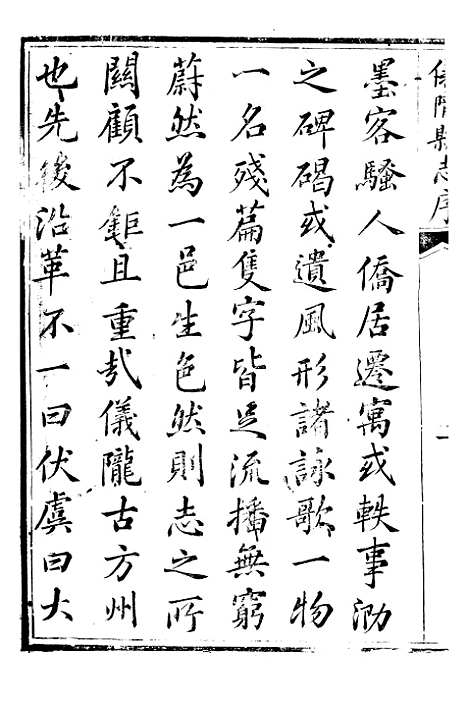 儀隴縣志序
墨客騷人僑居遷寓或軼事泐
之碑碣或遺風形諸詠歌一物
一名殘篇隻字皆足流播無窮
蔚然為一邑生色然則志之所
關顧不鉅且重㢤儀隴古方州
也先後沿革不一曰伏虞曰大